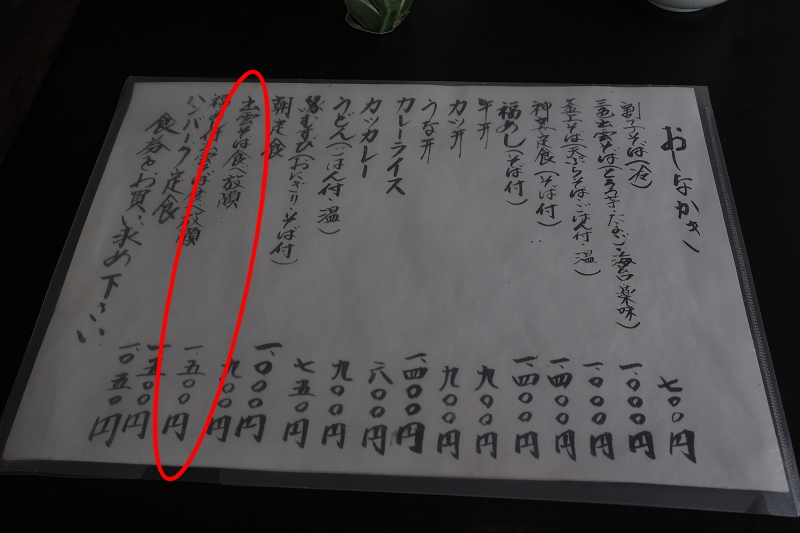 おしながき
割子そば(冷) 七〇〇円
三色出雲そば(とろろ芋・たまご)・海苔・薬味 一、〇〇〇円
釜上そば(天ぷらそば・ごはん付・温) 一、〇〇〇円
定食(そば付) 一、四〇〇円
福めし(そば付) 一、四〇〇円
牛丼 九〇〇円
カツ丼 九〇〇円
うな丼 一、四〇〇円
カレーライス 六〇〇円
カツカレー 九〇〇円
うどん(ごはん付・温) 七五〇円
縁むすび(おにぎり・そば付) 一、〇〇〇円
朝定食 九〇〇円
出雲そば食べ放題 一、五〇〇円
そば食べ放題 一、五〇〇円
ハンバーグ定食 一、〇五〇円
食券をお買い求め下さい